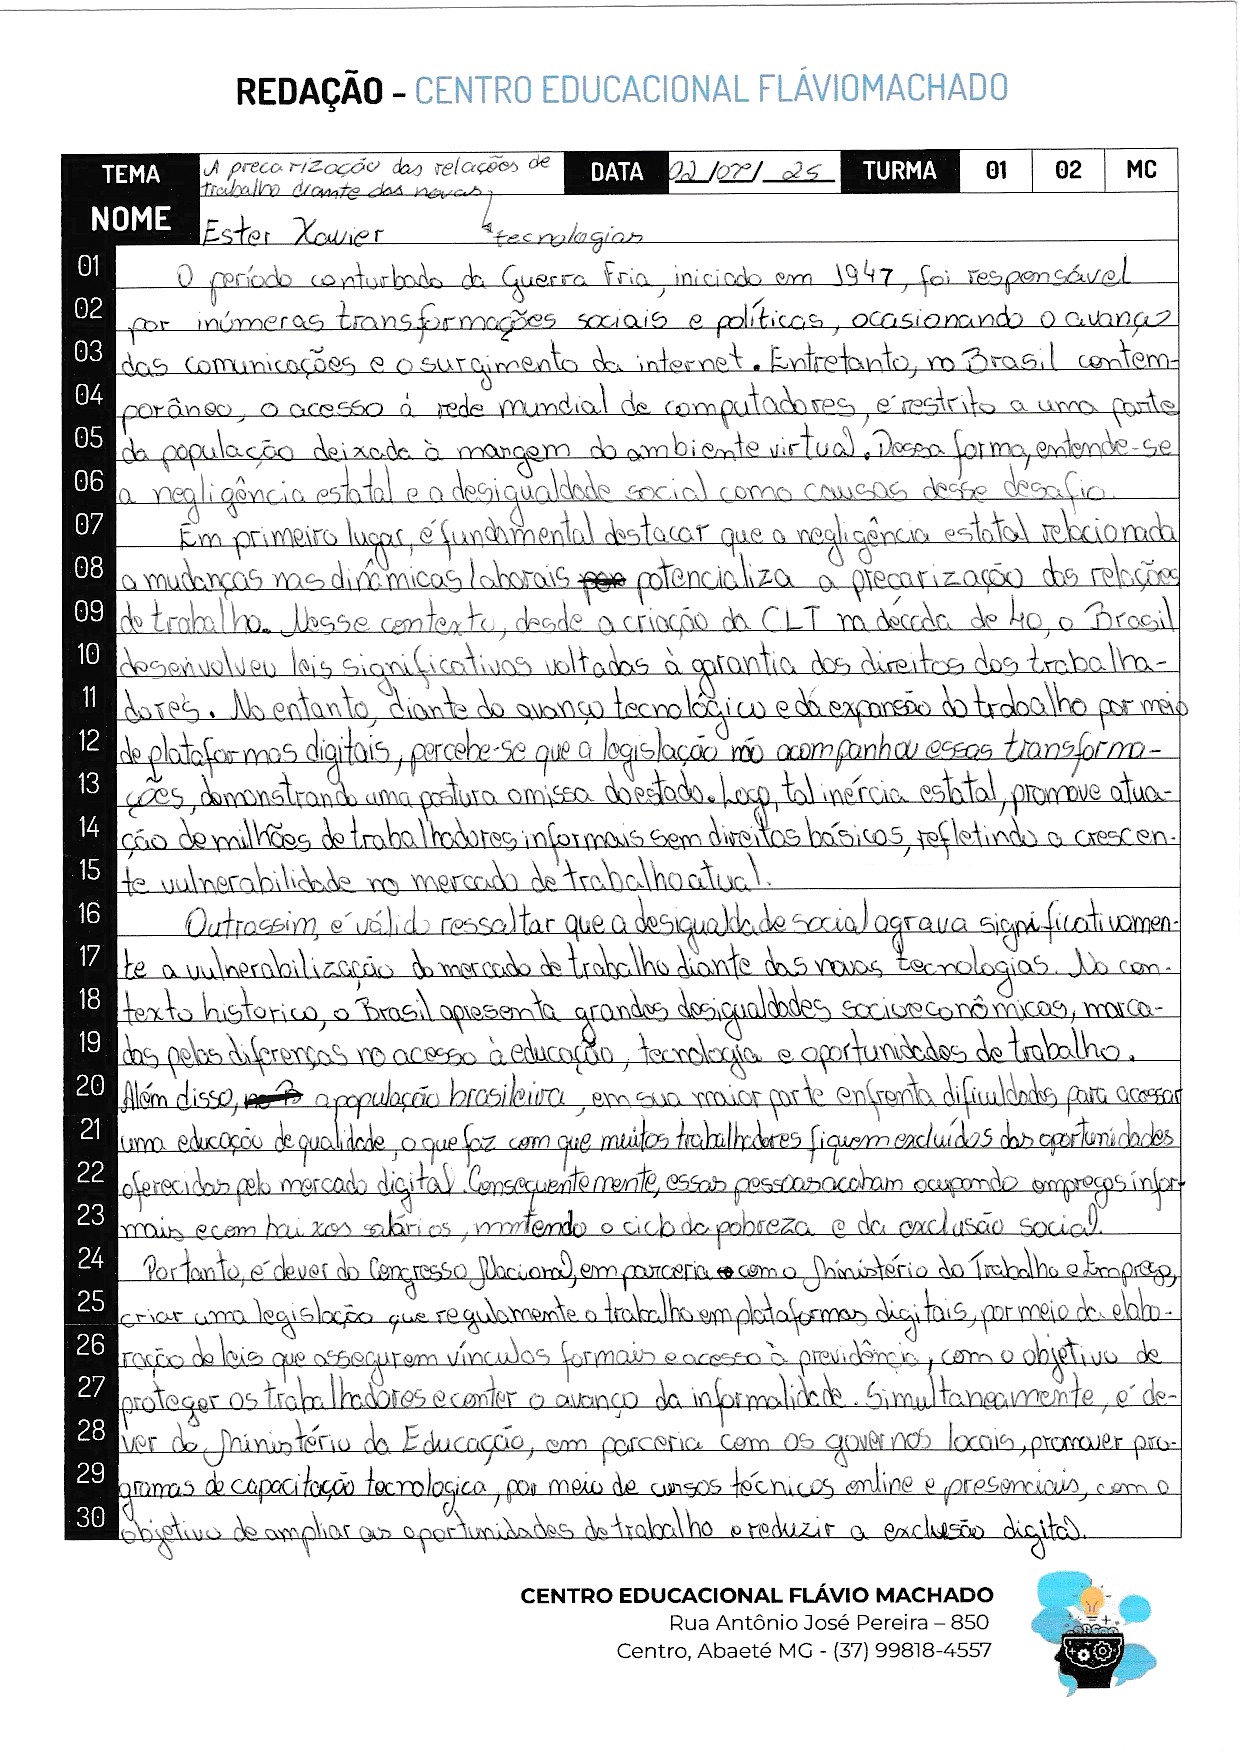 REDAÇÃO - CENTRO EDUCACIONAL FLÁVIOMACHADO
TEMA A precarização das relações de trabalho diante das novas tecnologias DATA 02/07/25 TURMA 01 02 MC
NOME Ester Xavier
01 O período conturbado da Guerra Fria, iniciado em 1947, foi responsável
02 por inúmeras transformações sociais e políticas, ocasionando o avanço
03 das comunicações e o surgimento da internet. Entretanto, no Brasil contem-
04 porâneo, o acesso à rede mundial de computadores, é restrito a uma parte
05 da população deixada à margem do ambiente virtual. Dessa forma, entende-se
06 a negligência estatal e a desigualdade social como causas desse desafio.
07 Em primeiro lugar, é fundamental destacar que a negligência estatal relacionada
08 a mudanças nas dinâmicas laborais potencializa a precarização das relações
09 de trabalho. Nesse contexto, desde a criação da CLT na década de 40, o Brasil
10 desenvolveu leis significativas voltadas à garantia dos direitos dos trabalha-
11 dores. No entanto, diante do avanço tecnológico e da expansão do trabalho por meio
12 de plataformas digitais, percebe-se que a legislação não acompanhou essas transforma-
13 ções, demonstrando uma postura omissa do estado. Logo, tal inércia estatal, promove atua-
14 ção de milhões de trabalhadores informais sem direitos básicos, refletindo a crescen-
15 te vulnerabilidade no mercado de trabalho atual.
16 Outrossim, é válido ressaltar que a desigualdade social agrava significativamen-
17 te a vulnerabilização do mercado de trabalho diante das novas tecnologias. No con-
18 texto historico, o Brasil apresenta grandes desigualdades socioeconômicas, marca-
19 das pelas diferenças no acesso à educação, tecnologia e oportunidades de trabalho.
20 Além disso, a população brasileira, em sua maior parte enfrenta dificuldades para acessar
21 uma educação de qualidade, o que faz com que muitos trabalhadores fiquem excluídos das oportunidades
22 oferecidas pelo mercado digital. Consequentemente, essas pessoas acabam ocupando empregos infor-
23 mais e com baixos salários, mantendo o ciclo da pobreza e da exclusão social.
24 Portanto, é dever do Congresso Nacional, em parceria com o Ministério do Trabalho e Emprego,
25 criar uma legislação que regulamente o trabalho em plataformas digitais, por meio da elabo-
26 ração de leis que assegurem vínculos formais e acesso à previdência, com o objetivo de
27 proteger os trabalhadores e conter o avanço da informalidade. Simultaneamente, é de-
28 ver do Ministério da Educação, em parceria com os governos locais, promover pro-
29 gramas de capacitação tecnologica, por meio de cursos técnicos online e presenciais, com o
30 objetivo de ampliar as oportunidades de trabalho e reduzir a exclusão digital.
CENTRO EDUCACIONAL FLÁVIO MACHADO
Rua Antônio José Pereira – 850
Centro, Abaeté MG - (37) 99818-4557